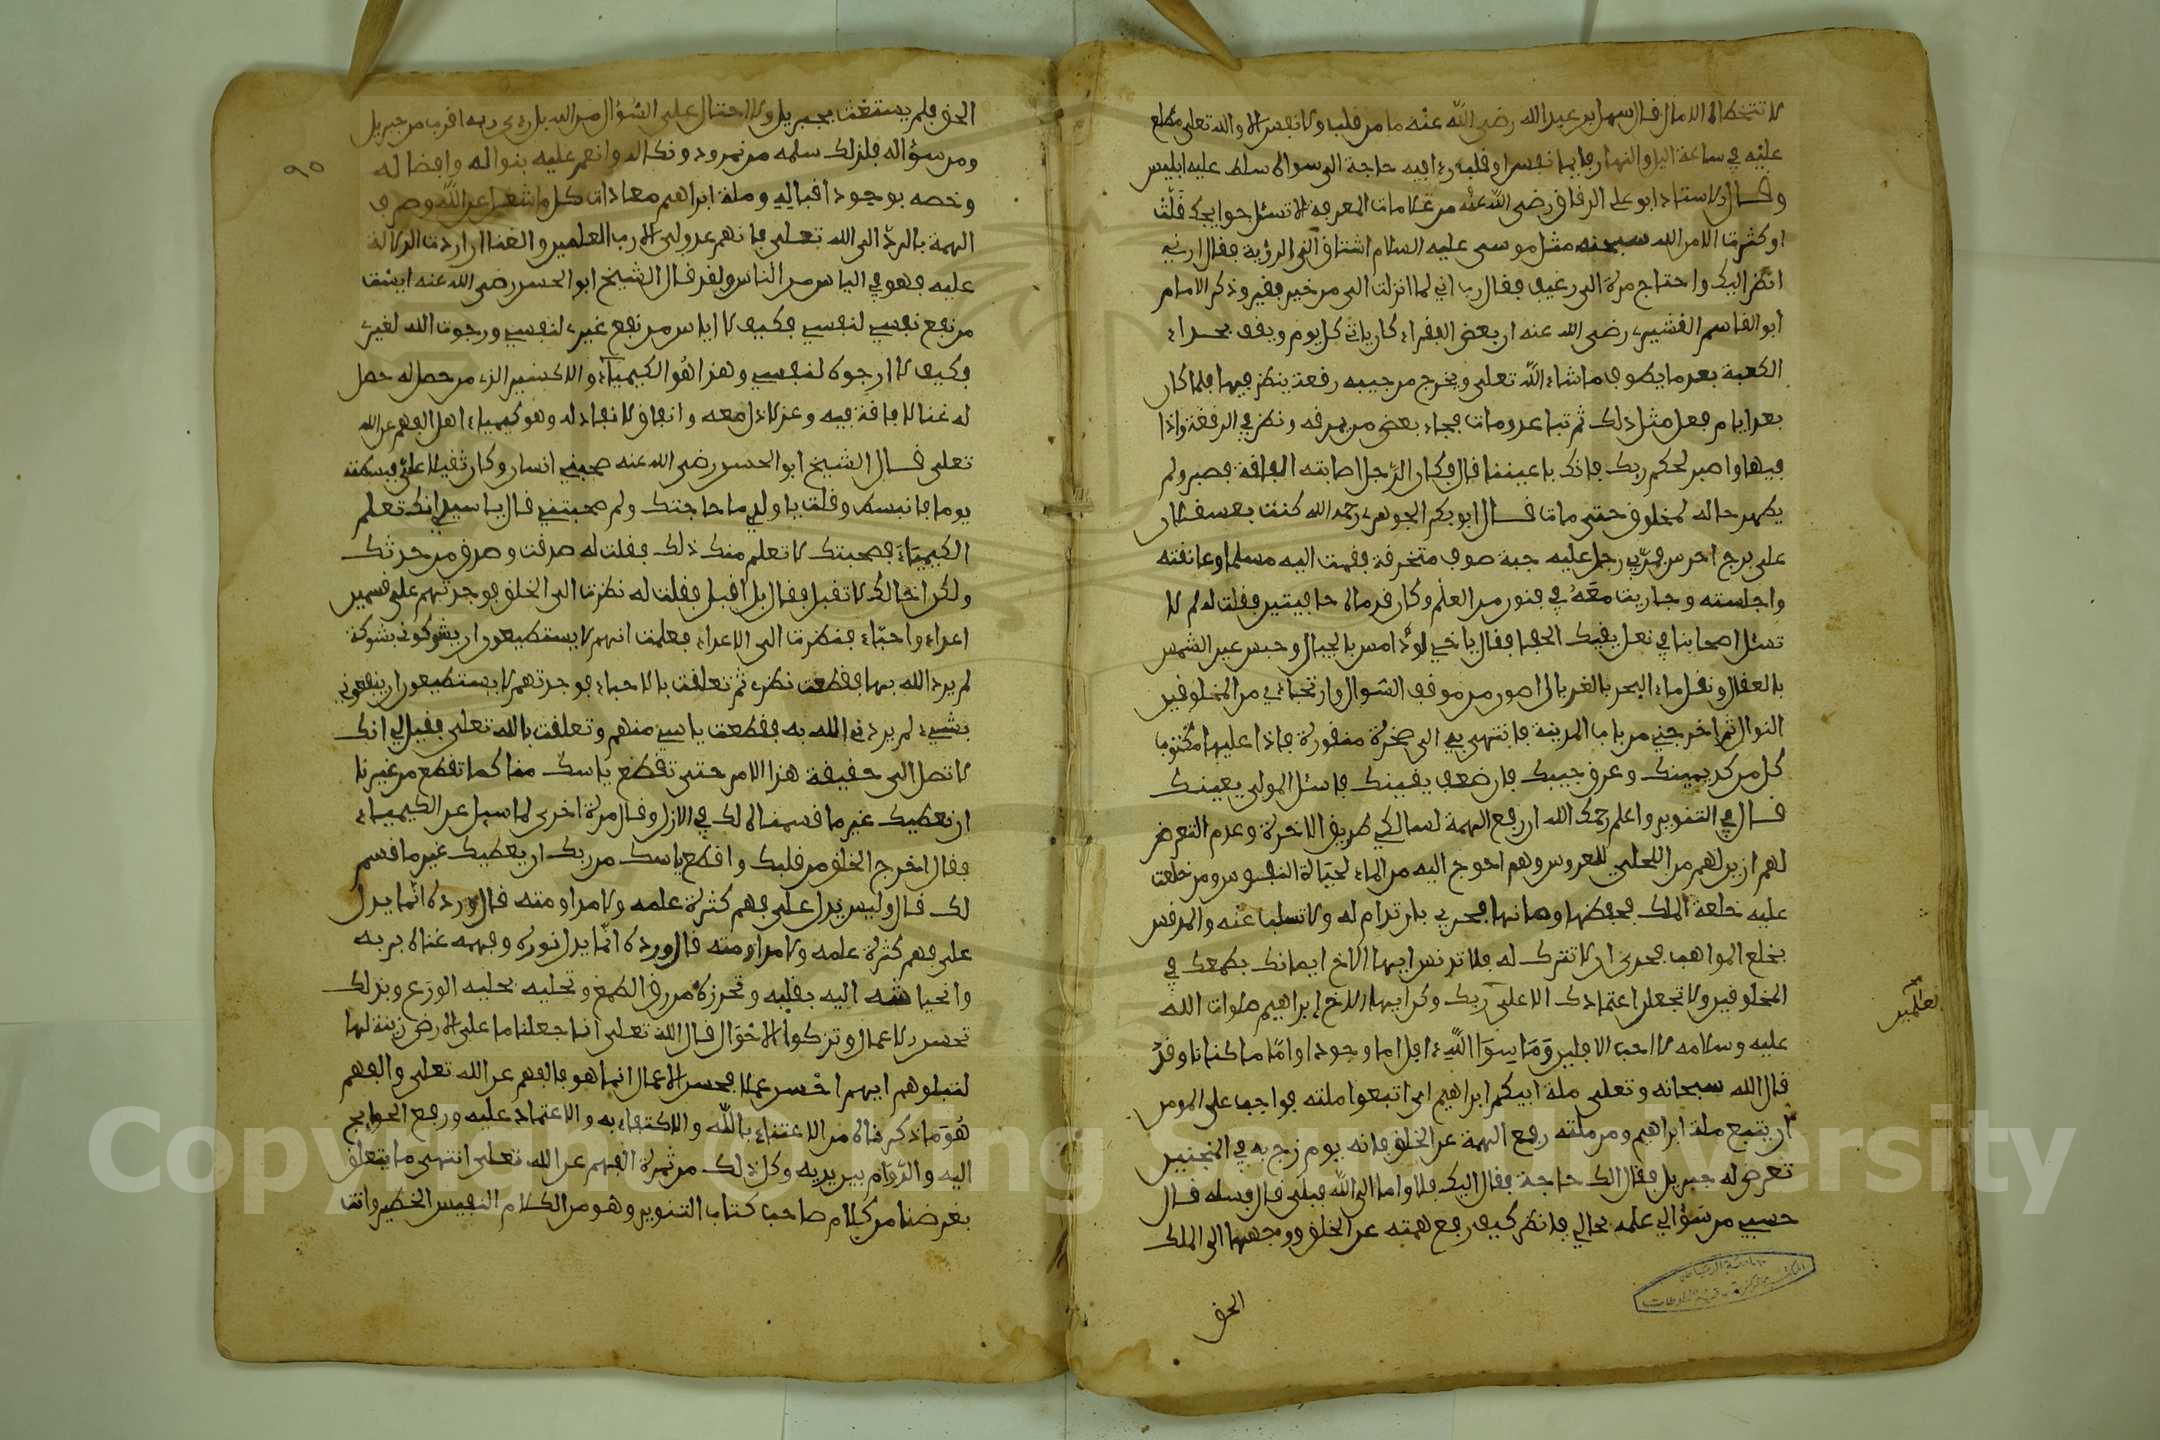 لا تتخطاه الامال قال سهل بن عبد الله رضي الله عنه ما من قلب ولا نفس الا والله تعلى مطلع
عليه في ساعة اليل والنهار فايما نفس او قلب رءا فيه حاجة الى سواه سلط عليه ابليس
وقال الاستاذ ابو علي الدقاق رضي الله عنه من علامات المعرفة الا تسئل حوايجك قلت
او كثرت الا من الله سبحنه مثل موسى عليه السلام اشتاق الى الرؤية فقال ارني
انظر اليك واحتاج مرة الى رغيف فقال رب اني لما انزلت الي من خير فقير وذكر الامام
ابو القاسم القشيري رضي الله عنه ان بعض الفقراء كان ياتي كل يوم ويقف بحداء
الكعبة بعد ما يطوف ما شاء الله تعلى ويخرج من جيبه رقعة ينظر فيها فلما كان
بعد ايام فعل مثل ذلك ثم تباعد ومات فجاء بعض من يرمقه ونظر في الرقعة واذا
فيها واصبر لحكم ربك فانك باعيننا قال فكان الرجل اصابته الفاقة فصبر ولم
يظهر حاله لمخلوق حتى مات قال ابو بكر الجوهري رحمه الله كنت بعسقلان
على برج احرس فمر بي رجل عليه جبة صوف متخرقة فقمت اليه مسلما وعانقته
واجلسته وجاريت معه في فنون من العلم وكان قدماه حافيتين فقلت له لم لا
تسئل اصحابنا في نعل يقيك الحفا فقال يا اخي لرد امس بالحبال وحبس عين الشمس
بالعقال ونقل ماء البحر بالغربال اهون من موقف السوال وارتجاءي من المخلوقين
النوال ثم اخرجني من باب المدينة فانتهى بي الى صخرة منقورة فاذا عليها مكتوب
كل من كد يمينك وعرق جبينك فان ضعف يقينك فاسئل المولى يعينك
قال في التنوير واعلم رحمك الله ان رفع الهمة لسالكي طريق الاخرة وعدم التعرض
لهم ازين لهم من الحلي للعروس وهم احوج اليه من الماء لحياة النفوس ومن خلعت
عليه خلعة الملك فحفظها وصانها فحري بان تدام له ولا تسلب عنه والمدنس
بخلع المواهب فحري ان لا تترك له فلا تدنس ايها الاخ ايمانك بطمعك في
المخلوقين ولا تجعل اعتمادك الا على ربك وكن ايها الاخ ابراهيم صلوات الله
عليه وسلامه لا احب الافلين وما سوا الله ءافل اما وجودا واما امكانا وقد
قال الله سبحانه وتعلى ملة ابيكم ابراهيم اي اتبعوا ملته فواجب على المومن
ان يتبع ملة ابراهيم ومن ملته رفع الهمة عن الخلق فانه يوم زج به في المنجنيق
تعرض له جبريل فقال الك حاجة فقال اليك فلا واما الى الله فبلى قال فسله قال
حسبي من سؤالي علمه بحالي فانظر كيف رفع همته عن الخلق ووجهها الى الملك
الحق
الحق فلم يستغث بجبريل ولا احتال على السؤال من الله بل رءى ربه اقرب من جبريل
ومن سؤاله فلذلك سلمه من نمرود ونكاله وانعم عليه بنواله وافضاله
وخصه بوجود اقباله وملة ابراهيم معادات كل ما شغل عن الله وصرف
الهمة بالرد الى الله تعلى فانهم عدو لي الا رب العلمين والغنا ان اردت الدلالة
عليه فهو في الياس من الناس ولقد قال الشيخ ابو الحسن رضي الله عنه ايست
من نفع نفسي لنفسي فكيف لا اياس من نفع غيري لنفسي ورجوت الله لغيري
فكيف لا ارجوه لنفسي وهذا هو الكيمياء والاكسير الذي من حصل له حصل
له غنا لا فاقة فيه وعز لا ذل معه وانفاق لا نفاد له وهو كيمياء اهل الفهم عن الله
تعلى قال الشيخ ابو الحسن رضي الله عنه صحبني انسان وكان ثقيلا علي فبسطته
يوما فانبسط وقلت يا ولدي ما حاجتك ولم صحبتني قال يا سيدي انك تعلم
الكيمياء فصحبتك لا تعلم منك ذلك فقلت له صدقت وصدق من حدثك
ولكن اخالك لا تقبل فقال بل اقبل فقلت له نظرت الى الخلق فوجدتهم على قسمين
اعداء واحباء فنظرت الى الاعداء فعلمت انهم لا يستطيعون ان يشوكوني بشوكة
لم يرد الله بها فقطعت نظري ثم تعلقت بالاحباء فوجدتهم لا يستطيعون ان ينفعوني
بشيء لم يردني الله به فقطعت ياسي منهم وتعلقت بالله تعلى فقيل لي انك
لا تصل الى حقيقة هذا الامر حتى تقطع ياسك منا كما تقطع من غيرنا
ان نعطيك غير ما قسمنا لك في الازل وقال مرة اخرى لما سيل عن الكيمياء
فقال اخرج الخلق من قلبك واقطع ياسك من ربك ان يعطيك غير ما قسم
لك قال وليس يدل على فهم كثرة علمه ولا مداومته قال ورده انما يدل
على فهم كثرة علمه ولا مداومته قال ورده انما يدل نوره وفهمه غناه بربه
وانحياشه اليه بقلبه وتحرزه من رق الطمع وتحليه بحلية الورع وبذلك
تحسن الاعمال وتزكوا الاحوال قال الله تعلى انا جعلنا ما على الارض زينة لها
لنبلوهم ايهم احسن عملا فحسن الاعمال انما هو بالفهم عن الله تعلى والفهم
هو ما ذكرناه من الاغتناء بالله والاكتفاء به والاعتماد عليه ورفع الحوايج
اليه والدوام بين يديه وكل ذلك من ثمرة الفهم عن الله تعلى انتهى ما يتعلق
بغرضنا من كلام صاحب كتاب التنوير وهو من الكلام النفيس الخطير وانت
٩٥
Copyright © King Saud University